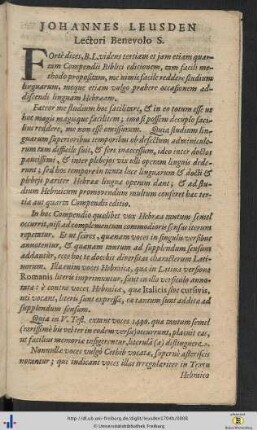 JOHANNES LEUSDEN
Lectori Benevolo S.
Fortè dices, B.L. videns tertiam et jam etiam quartam
Compendii Biblici editionem, tum facili methodo
propositum, me nimis facilè reddere studium
linguarum, meque etiam vulgo præbere occasionem addiscendi
linguam Hebræam.
Fateor me studium hoc facilitare, & in eo totum esse ut
hoc magis magisque facilitem; imò si possem decuplo facilius
reddere, me non esse omissurum. Quia studium linguarum
superioribus temporibus ob defectum adminiculorum
tam difficile fuit, & fere inaccessum, ideo inter doctos
paucissimi, & inter plebejos vix ulli operam linguis dederunt;
sed hoc tempore in tanta luce linguarum & docti &
plebeji pariter Hebrææ linguæ operam dant; & ad studium
Hebraicum promovendum multum conferet hæc tertia
aut quarta Compendii editio.
In hoc Compendio quælibet vox Hebræa tantum semel
occurrit, nisi ad complementum commodioris sensus iterum
repetatur. Et ut scires, quænam voces in singulis versibus
annotentur, & quænam tantum ad supplendum sensum
addantur, ecce hoc te docebit diversitas characterum Latinorum.
Etenim voces Hebraicæ, quæ in Latina versione
Romanis literis imprimuntur, sunt in illo versiculo annotatæ:
è contra voces Hebraicæ, quæ Italicis sive cursivis,
uti vocant, literis sunt expressæ, eæ tantum sunt additæ ad
supplendum sensum.
Quia in V. Test. extant voces 2490, quæ tantum semel
(rarissimè bis vel ter in eodem versu) occurrunt, placuit eas,
ut facilius memoria insigerentur, literulâ (a) distinguere.
Nonnullæ voces vulgò Cethib vocatæ, supernè asteriscis
notantur; qui indicant voces illas irregulariter in Textu
Hebraico
http://dl.ub.uni-freiburg.de/diglit/leusden1704b/0008
© Universitätsbibliothek Freiburg